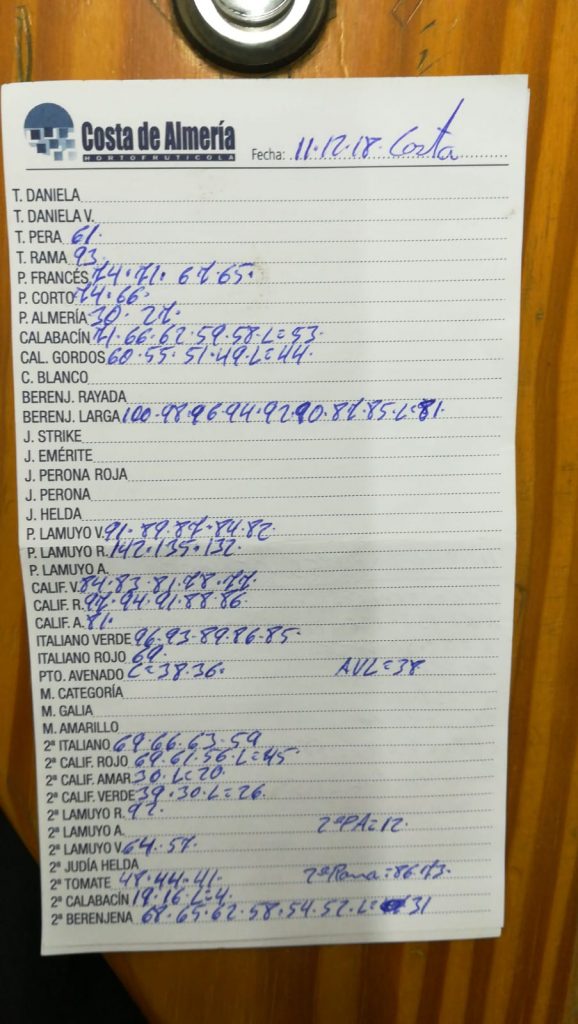 Costa de Almería
HORTOFRUTICOLA
Fecha: 11.12.18. Costa
T. DANIELA
T. DANIELA V.
T. PERA 61.
T. RAMA 93.
P. FRANCÉS 74.71. 67.65.
P. CORTO 74.66.
P. ALMERÍA 30. 27.
CALABACÍN 71.66.62.59.58.L=53
CAL. GORDOS 60.55.51.49.L=44.
C. BLANCO
BERENJ. RAYADA
BERENJ. LARGA 100.98.96.94.92.90.87.85.L=81.
J. STRIKE
J. EMÉRITE
J. PERONA ROJA
J. PERONA
J. HELDA
P. LAMUYO V. 91.89.87.84.82
P. LAMUYO R. 142.135.132.
P. LAMUYO A.
CALIF. V. 84.83.81.78.77.
CALIF. R. 97.94.91.88.86
CALIF. A. 81.
ITALIANO VERDE 96.93.89.86.85.
ITALIANO ROJO 69.
PTO. AVENADO C=38.36. AVL=38
M. CATEGORÍA
M. GALIA
M. AMARILLO
2ª ITALIANO 69.66.63.59
2ª CALIF. ROJO 69.61.56.L=45
2ª CALIF. AMAR. 30.L=20.
2ª CALIF. VERDE 39.30.L=26.
2ª LAMUYO R. 92.
2ª LAMUYO A. 2ªPA=12.
2ª LAMUYO V. 64.57.
2ª JUDÍA HELDA
2ª TOMATE 47.44.41. 2ªRama=86.73.
2ª CALABACÍN 19.16.L=4.
2ª BERENJENA 68.65.62.58.54.52.L= 31